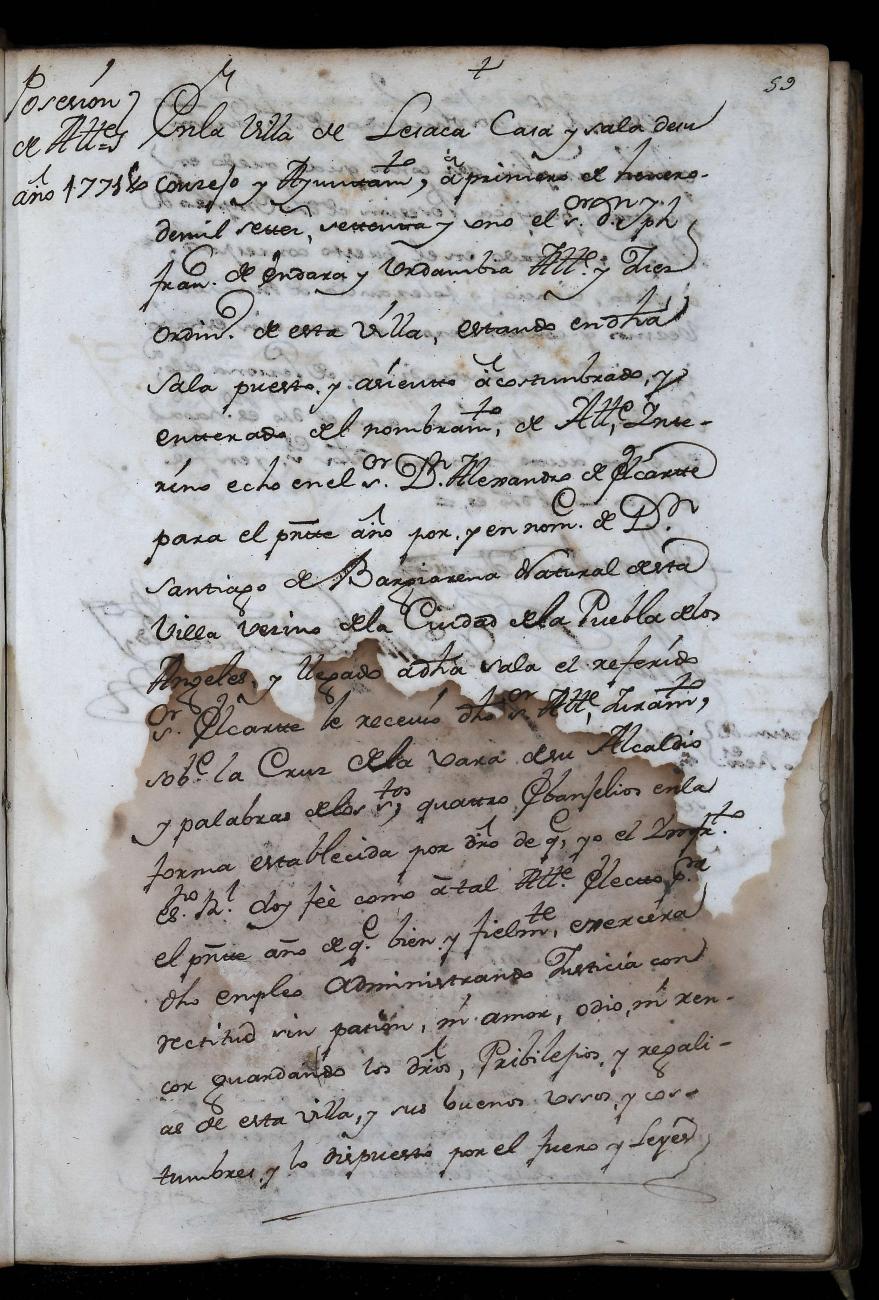 59
Posesion
de Altes
año 1771
En la Villa de Lesaca Casa y sala de su
consejo y Ayuntamto, á primero de henero
de mil settes settenta y uno el sor dn Jph
fran.co de Endara y Vrdambia Alte y Juez
Ordin.o de esta Villa, estando en dha
sala puesto y asiento acostumbrado, y
entterado del nombramto, de Alte Inte-
rino echo en el sor Dn Alexandro de Elcartte
para el pntte año por y en nome de Dn
santiago de Barziarena Natural de esta
Villa Vesino de la Ciudad de la Puebla de los
Angeles, y llegado a dha sala el referido
sor Elcartte le receuió dho sor Alte Juramto,
sobe la Cruz de la vara de su Alcaldio
y palabras de los stos quattro Ebanjelios en la
forma establecida por dro de qe, yo el Imfrto
esno Rl doy feè como á tal Alte Electo pra
el pntte año de qe bien y fielmte, exercéra
dho empleo Administrando Justicia con
rectitud sin pasión, ni amor, odio, ni ren-
cor guardando los dros, Pribilejios, y regali-
as de esta villa, y sus buenos vssos, y cos-
tumbres, y lo dispuesto por el fuero y Leyes